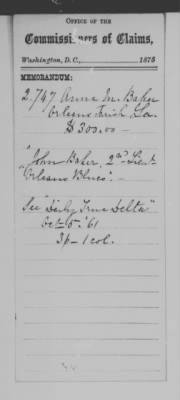 OFFICE OF THE
Commissioners of Claims,
Washington, D. C., 1875
MEMORANDUM:
2,747 Anna M. Baker
Orleans Parish, La.
$300.00 —
"John Baker, 2nd Lieut
Orleans Blues". —
See "Daily True Delta"
Oct 5 '61
3p — 1 col.